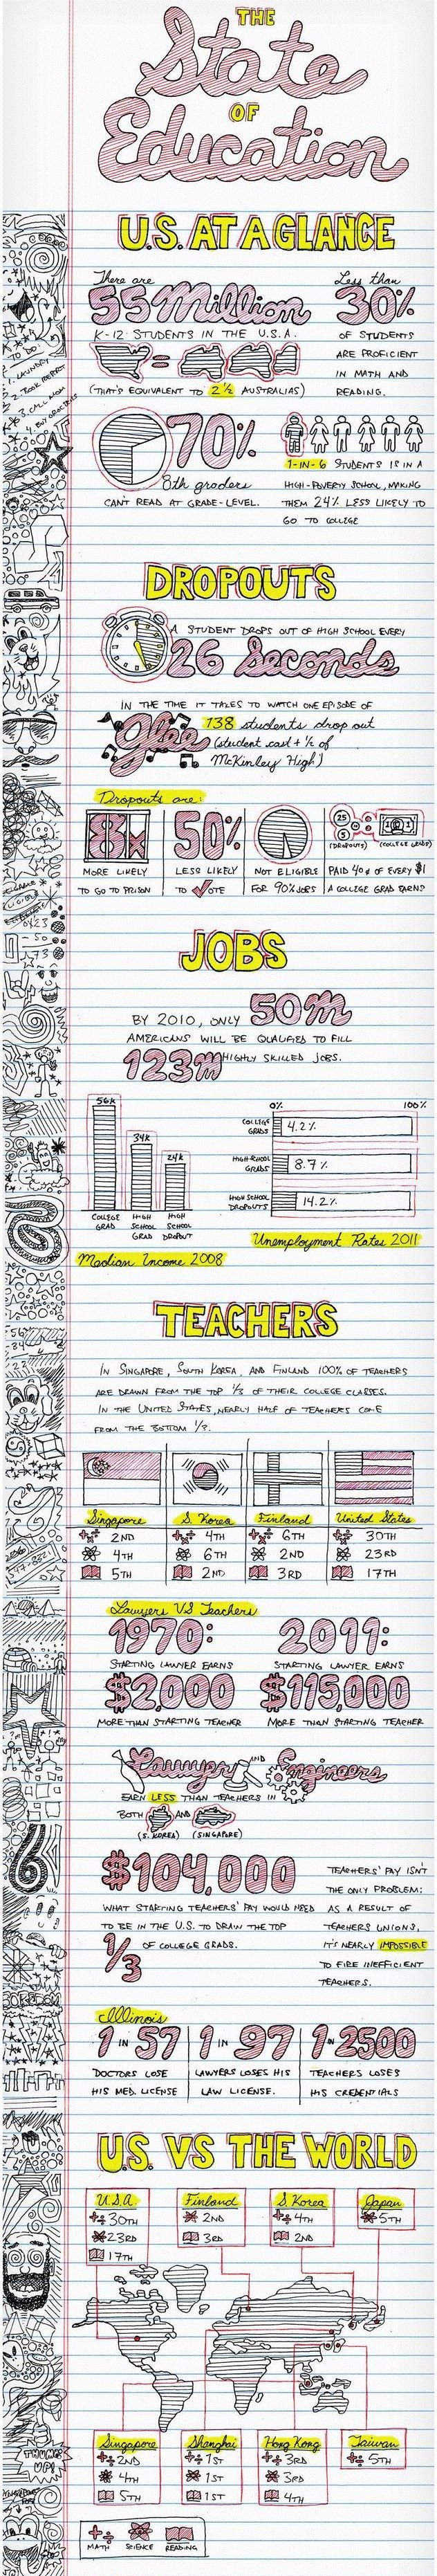 THE
State
OF
Education
U.S. AT A GLANCE
There are
55 Million
K-12 STUDENTS IN THE U.S.A.
=
(THAT'S EQUIVALENT TO 2 1/2 AUSTRALIAS)
Less than
30%
OF STUDENTS
ARE PROFICIENT
IN MATH AND
READING.
70%
8th graders
CAN'T READ AT GRADE-LEVEL.
1-IN-6 STUDENTS IS IN A
HIGH-POVERTY SCHOOL, MAKING
THEM 24% LESS LIKELY TO
GO TO COLLEGE
TO DO:
1. LAUNDRY
2. BOOK REPORT
3 CALL MOM
DROPOUTS
A STUDENT DROPS OUT OF HIGH SCHOOL EVERY
26 Seconds
IN THE TIME IT TAKES TO WATCH ONE EPISODE OF
glee 138 students drop out
(student cast + 1/2 of
McKinley High)
Dropouts are:
8x
MORE LIKELY
TO GO TO PRISON
50%
LESS LIKELY
TO VOTE
NOT ELIGIBLE
FOR 90% JOBS
25
5
(DROPOUTS)
(COLLEGE GRADS)
PAID 40¢ OF EVERY $1
A COLLEGE GRAD EARNS
JOBS
BY 2010, ONLY 50M
AMERICANS WILL BE QUALIFIED TO FILL
123M HIGHLY SKILLED JOBS.
56K
34K
24K
COLLEGE
GRAD
HIGH
SCHOOL
GRAD
HIGH
SCHOOL
DROPOUT
Median Income 2008
0%
100%
COLLEGE
GRADS
4.2%
HIGH-SCHOOL
GRADS
8.7%
HIGH SCHOOL
DROPOUTS
14.2%
Unemployment Rates 2011
TEACHERS
IN SINGAPORE, SOUTH KOREA, AND FINLAND 100% OF TEACHERS
ARE DRAWN FROM THE TOP 1/3 OF THEIR COLLEGE CLASSES.
IN THE UNITED STATES, NEARLY HALF OF TEACHERS COME
FROM THE BOTTOM 1/3.
Singapore
2ND
4TH
5TH
S. Korea
4TH
6TH
2ND
Finland
6TH
2ND
3RD
United States
30TH
23RD
17TH
Lawyers VS Teachers
1970:
STARTING LAWYER EARNS
$2,000
MORE THAN STARTING TEACHER
2011:
STARTING LAWYER EARNS
$115,000
MORE THAN STARTING TEACHER
Lawyers AND Engineers
EARN LESS THAN TEACHERS IN
BOTH AND
(S. KOREA) (SINGAPORE)
$104,000
WHAT STARTING TEACHERS' PAY WOULD NEED
TO BE IN THE U.S. TO DRAW THE TOP
1/3 OF COLLEGE GRADS.
TEACHERS' PAY ISN'T
THE ONLY PROBLEM:
AS A RESULT OF
TEACHERS UNIONS,
IT'S NEARLY IMPOSSIBLE
TO FIRE INEFFICIENT
TEACHERS.
Illinois
1 IN 57
DOCTORS LOSE
HIS MED. LICENSE
1 IN 97
LAWYERS LOSES HIS
LAW LICENSE.
1 IN 2500
TEACHERS LOSES
HIS CREDENTIALS
U.S. VS THE WORLD
U.S.A.
30TH
23RD
17TH
Finland
2ND
3RD
S. Korea
4TH
2ND
Japan
5TH
Singapore
2ND
4TH
5TH
Shanghai
1ST
1ST
1ST
Hong Kong
3RD
3RD
4TH
Taiwan
5TH
THUMBS
UP!
MATH SCIENCE READING